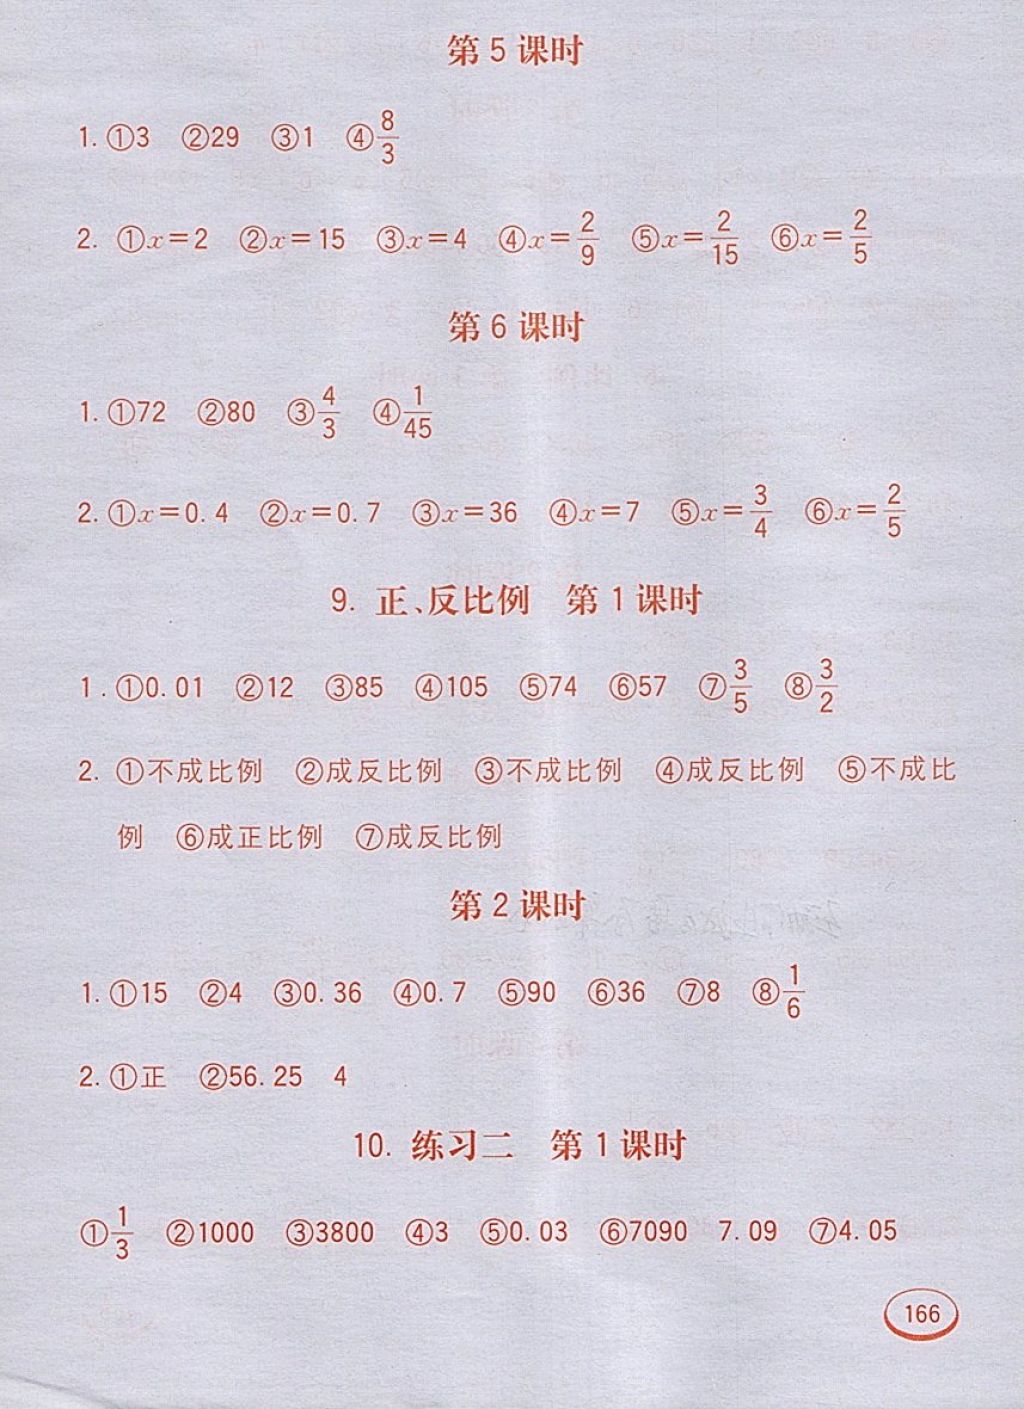 第5课时
1. ①3 ②29 ③1 ④8/3
2. ①x=2 ②x=15 ③x=4 ④x=2/9 ⑤x=2/15 ⑥x=2/5
第6课时
1. ①72 ②80 ③4/3 ④1/45
2. ①x=0.4 ②x=0.7 ③x=36 ④x=7 ⑤x=3/4 ⑥x=2/5
9. 正、反比例 第1课时
1. ①0.01 ②12 ③85 ④105 ⑤74 ⑥57 ⑦3/5 ⑧3/2
2. ①不成比例 ②成反比例 ③不成比例 ④成反比例 ⑤不成比
例 ⑥成正比例 ⑦成反比例
第2课时
1. ①15 ②4 ③0.36 ④0.7 ⑤90 ⑥36 ⑦8 ⑧1/6
2. ①正 ②56.25 4
10. 练习二 第1课时
①1/3 ②1000 ③3800 ④3 ⑤0.03 ⑥7090 7.09 ⑦4.05
166